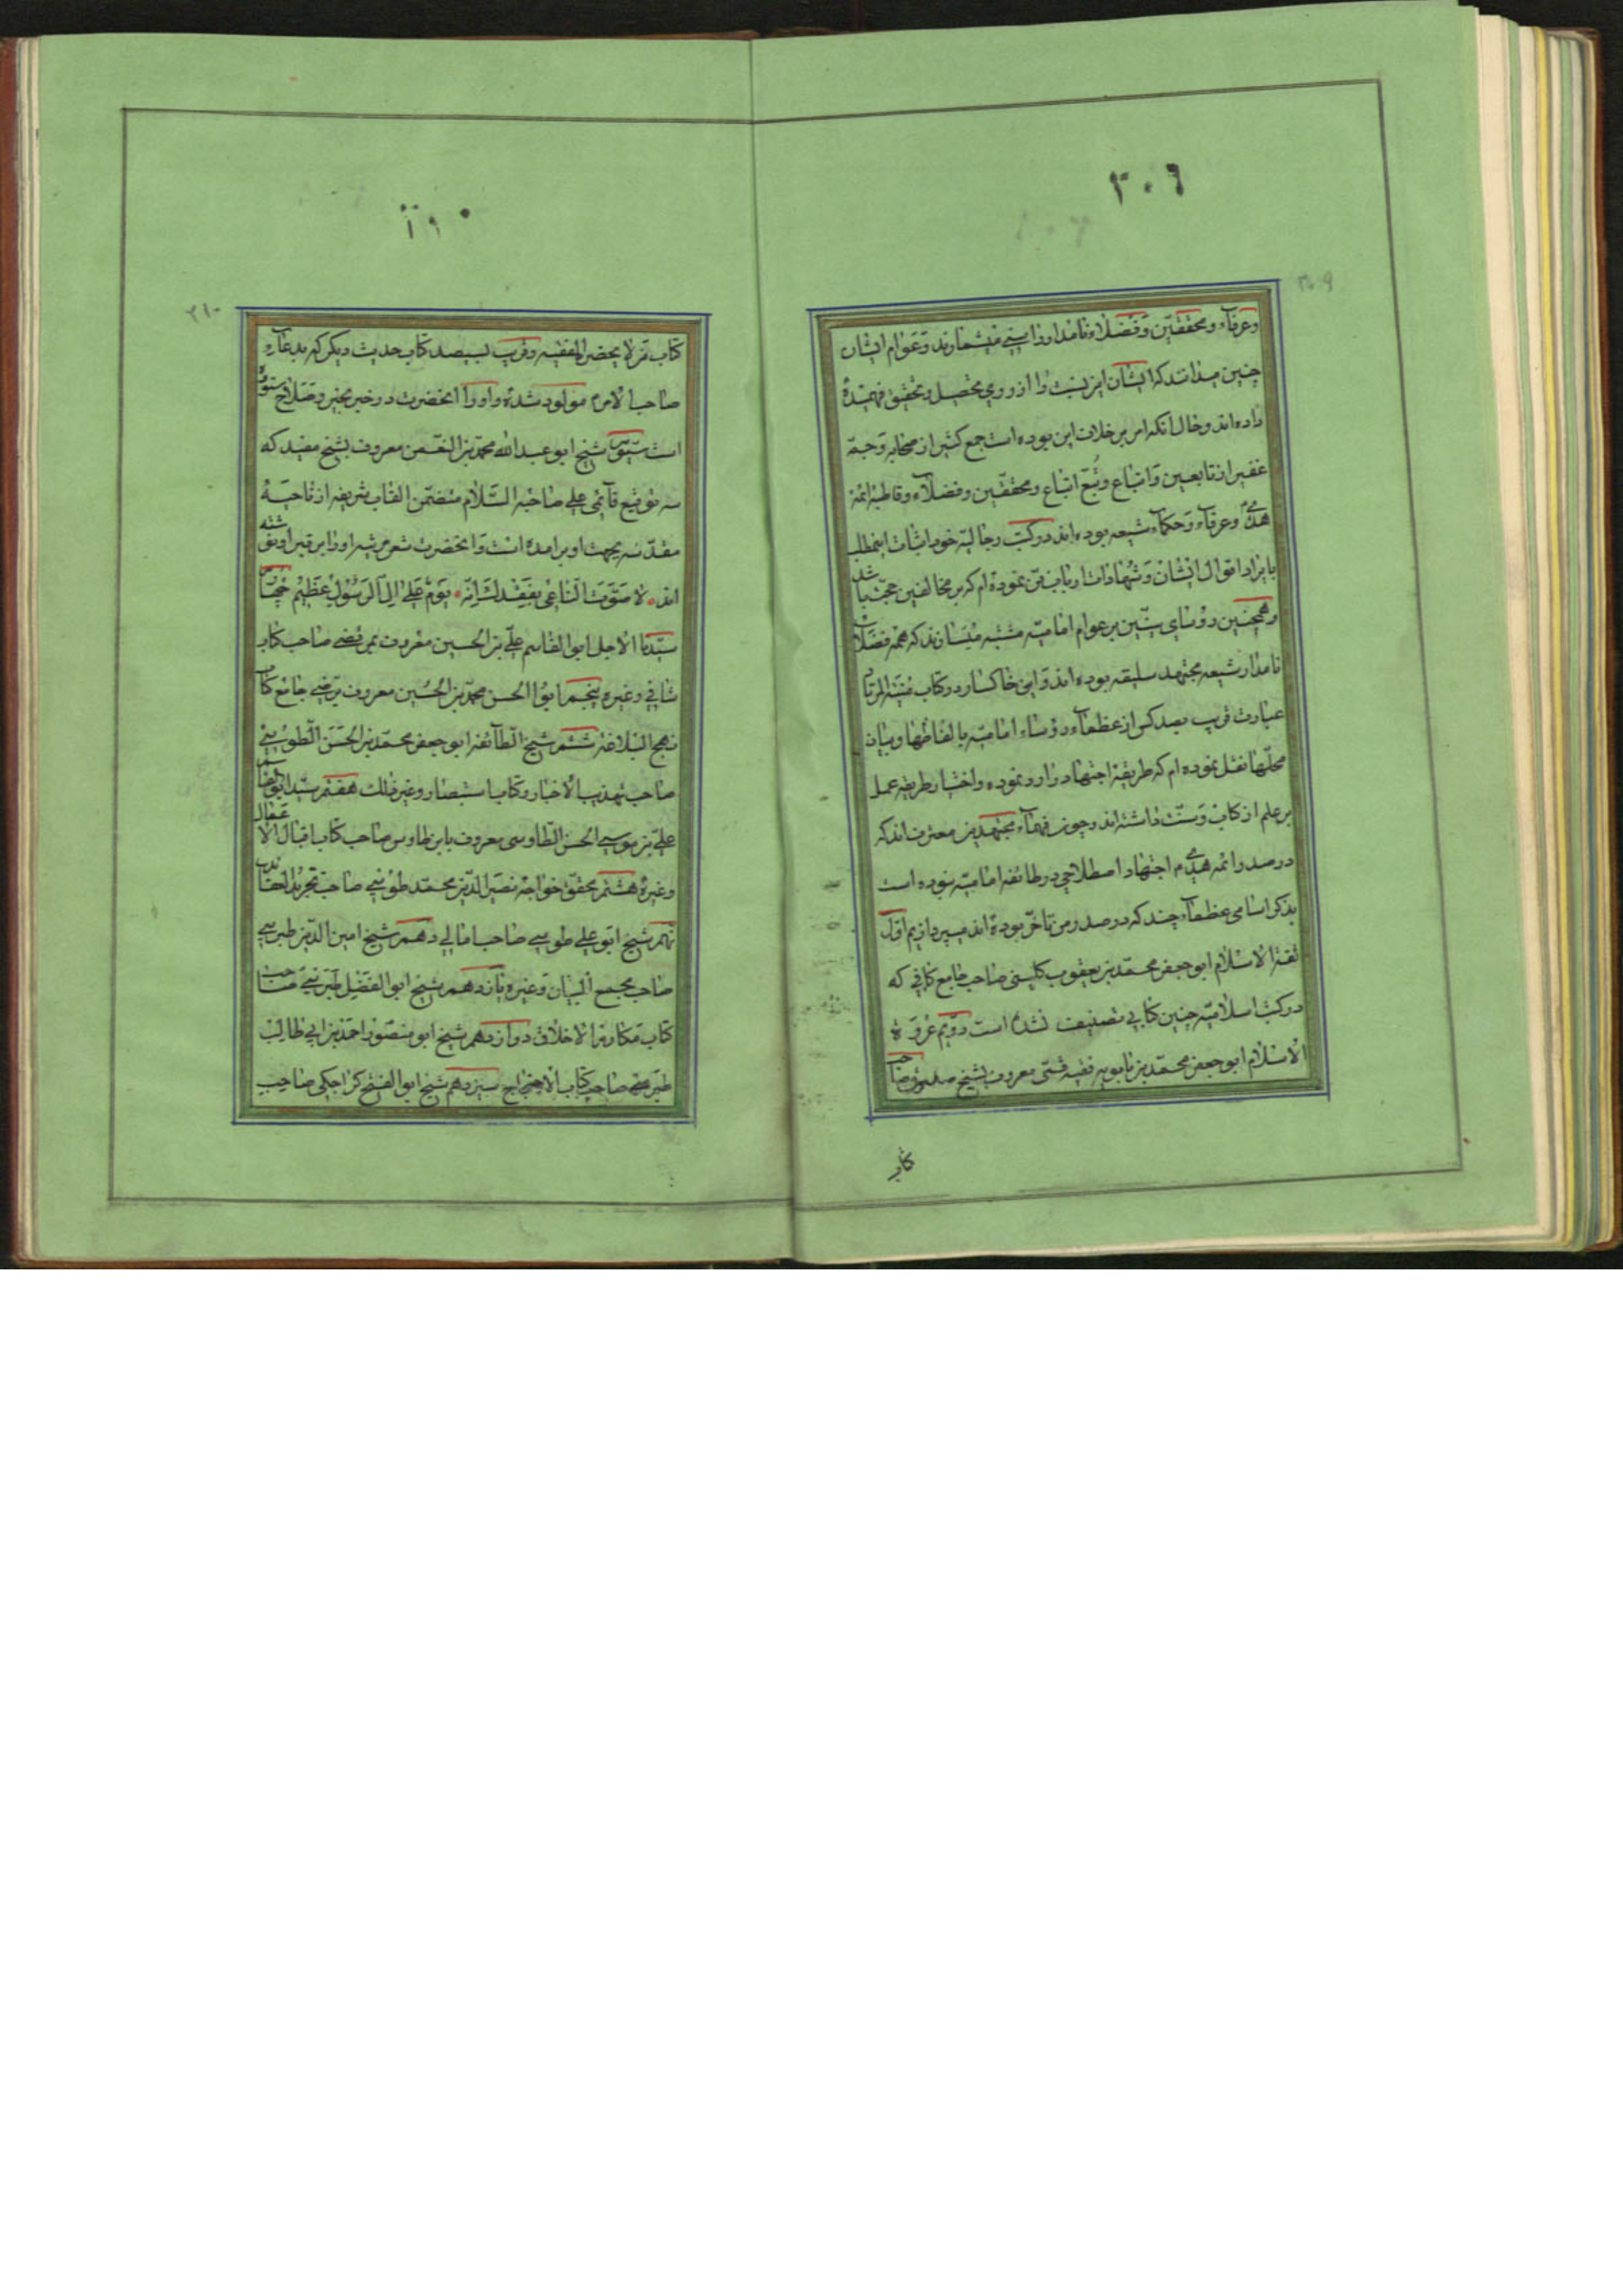 ٣٠٦
وعرفاء ومحققین وفضلاء نامدار و را سنی میشمارند و عوام ایشان
چنین میدانند که ایشان این نسبت را از روی تحصیل و تحقیق فهمیده
داده اند و حال آنکه امر بر خلاف این بوده است جمع کثیر از صحابه و جمه
غفیر از تابعین و اتباع و تُبّع اتباع و محققین و فضلاء و قاطبه ائمه
هدی و عرفاء و حکماء شیعه بوده اند در کتب رجالیه خود اثبات این مطلب
بایراد اقوال ایشان و شهادات ارباب فن نموده ام که بر مخالفین حجت باشد
و همچنین رؤسای سنیین بر عوام امامیه مشتبه میسازند که همه فضلای
نامدار شیعه مجتهد سلیقه بوده اند و این خاکسار در کتاب منیة المرتاد
عبارت قریب بصد کس از عظماء و رؤساء امامیه بالفاظها و بیان
محلها نقل نموده ام که طریقه اجتهاد را رد نموده و اختیار طریقه عمل
بر علم از کتاب و سنت داشته اند و چون فقهاء مجتهدین معترف اند که
در صدر ائمه هدی م اجتهاد اصطلاحی در طائفه امامیه نبوده است
بذکر اسامی عظماء چند که در صدر من تأخر بوده اند میپردازیم اول
ثقة الاسلام ابو جعفر محمد بن یعقوب کلینی صاحب جامع کافی که
در کتب اسلامیه چنین کتابی تصنیف نشده است دویم عروة
الاسلام ابو جعفر محمد بن بابویه فقیه قمی معروف بشیخ صدوق صاحب
کتاب
٢١٠
کتاب من لا یحضره الفقیه و قریب بسیصد کتاب حدیث دیگر که بدعاء
صاحب الامر م مولود شده و او را آنحضرت در خبر بخیر و صلاح ستوده
است سیوم شیخ ابو عبد الله محمد بن النعمن معروف بشیخ مفید که
سه توقیع قائمی علی صاحبه السلام متضمن القاب شریفه از ناحیه
مقدسه بجهت او بر آمده است و آنحضرت شعر مرثیه او را بر قبر او نوشته
اند لا صَوَّتَ الناعی بفقدک إنه یوم علی آل الرسول عظیم چهارم
سیدنا الاجل ابو القاسم علی بن الحسین معروف بمرتضی صاحب کتاب
شافی و غیره پنجم ابو الحسن محمد بن الحُسین معروف برضی جامع کتاب
نهج البلاغه ششم شیخ الطائفه ابو جعفر محمد بن الحَسَن الطوسی
صاحب تهذیب الاخبار و کتاب استبصار و غیر ذلک هفتم سید ابو القاسم
علی بن موسی الحسن الطاوسی معروف بابن طاوس صاحب کتاب اقبال الاعمال
و غیره هشتم محقق خواجه نصیر الدین محمد طوسی صاحب تجرید العقاید
نهم شیخ ابو علی طوسی صاحب امالی دهم شیخ امین الدین طبرسی
صاحب مجمع البیان و غیره یازدهم شیخ ابو الفضل طبرسی صاحب
کتاب مکارم الاخلاق دوازدهم شیخ ابو منصور احمد بن ابی طالب
طبرسی صاحب کتاب الاحتجاج سیزدهم شیخ ابو الفتح کراجکی صاحب